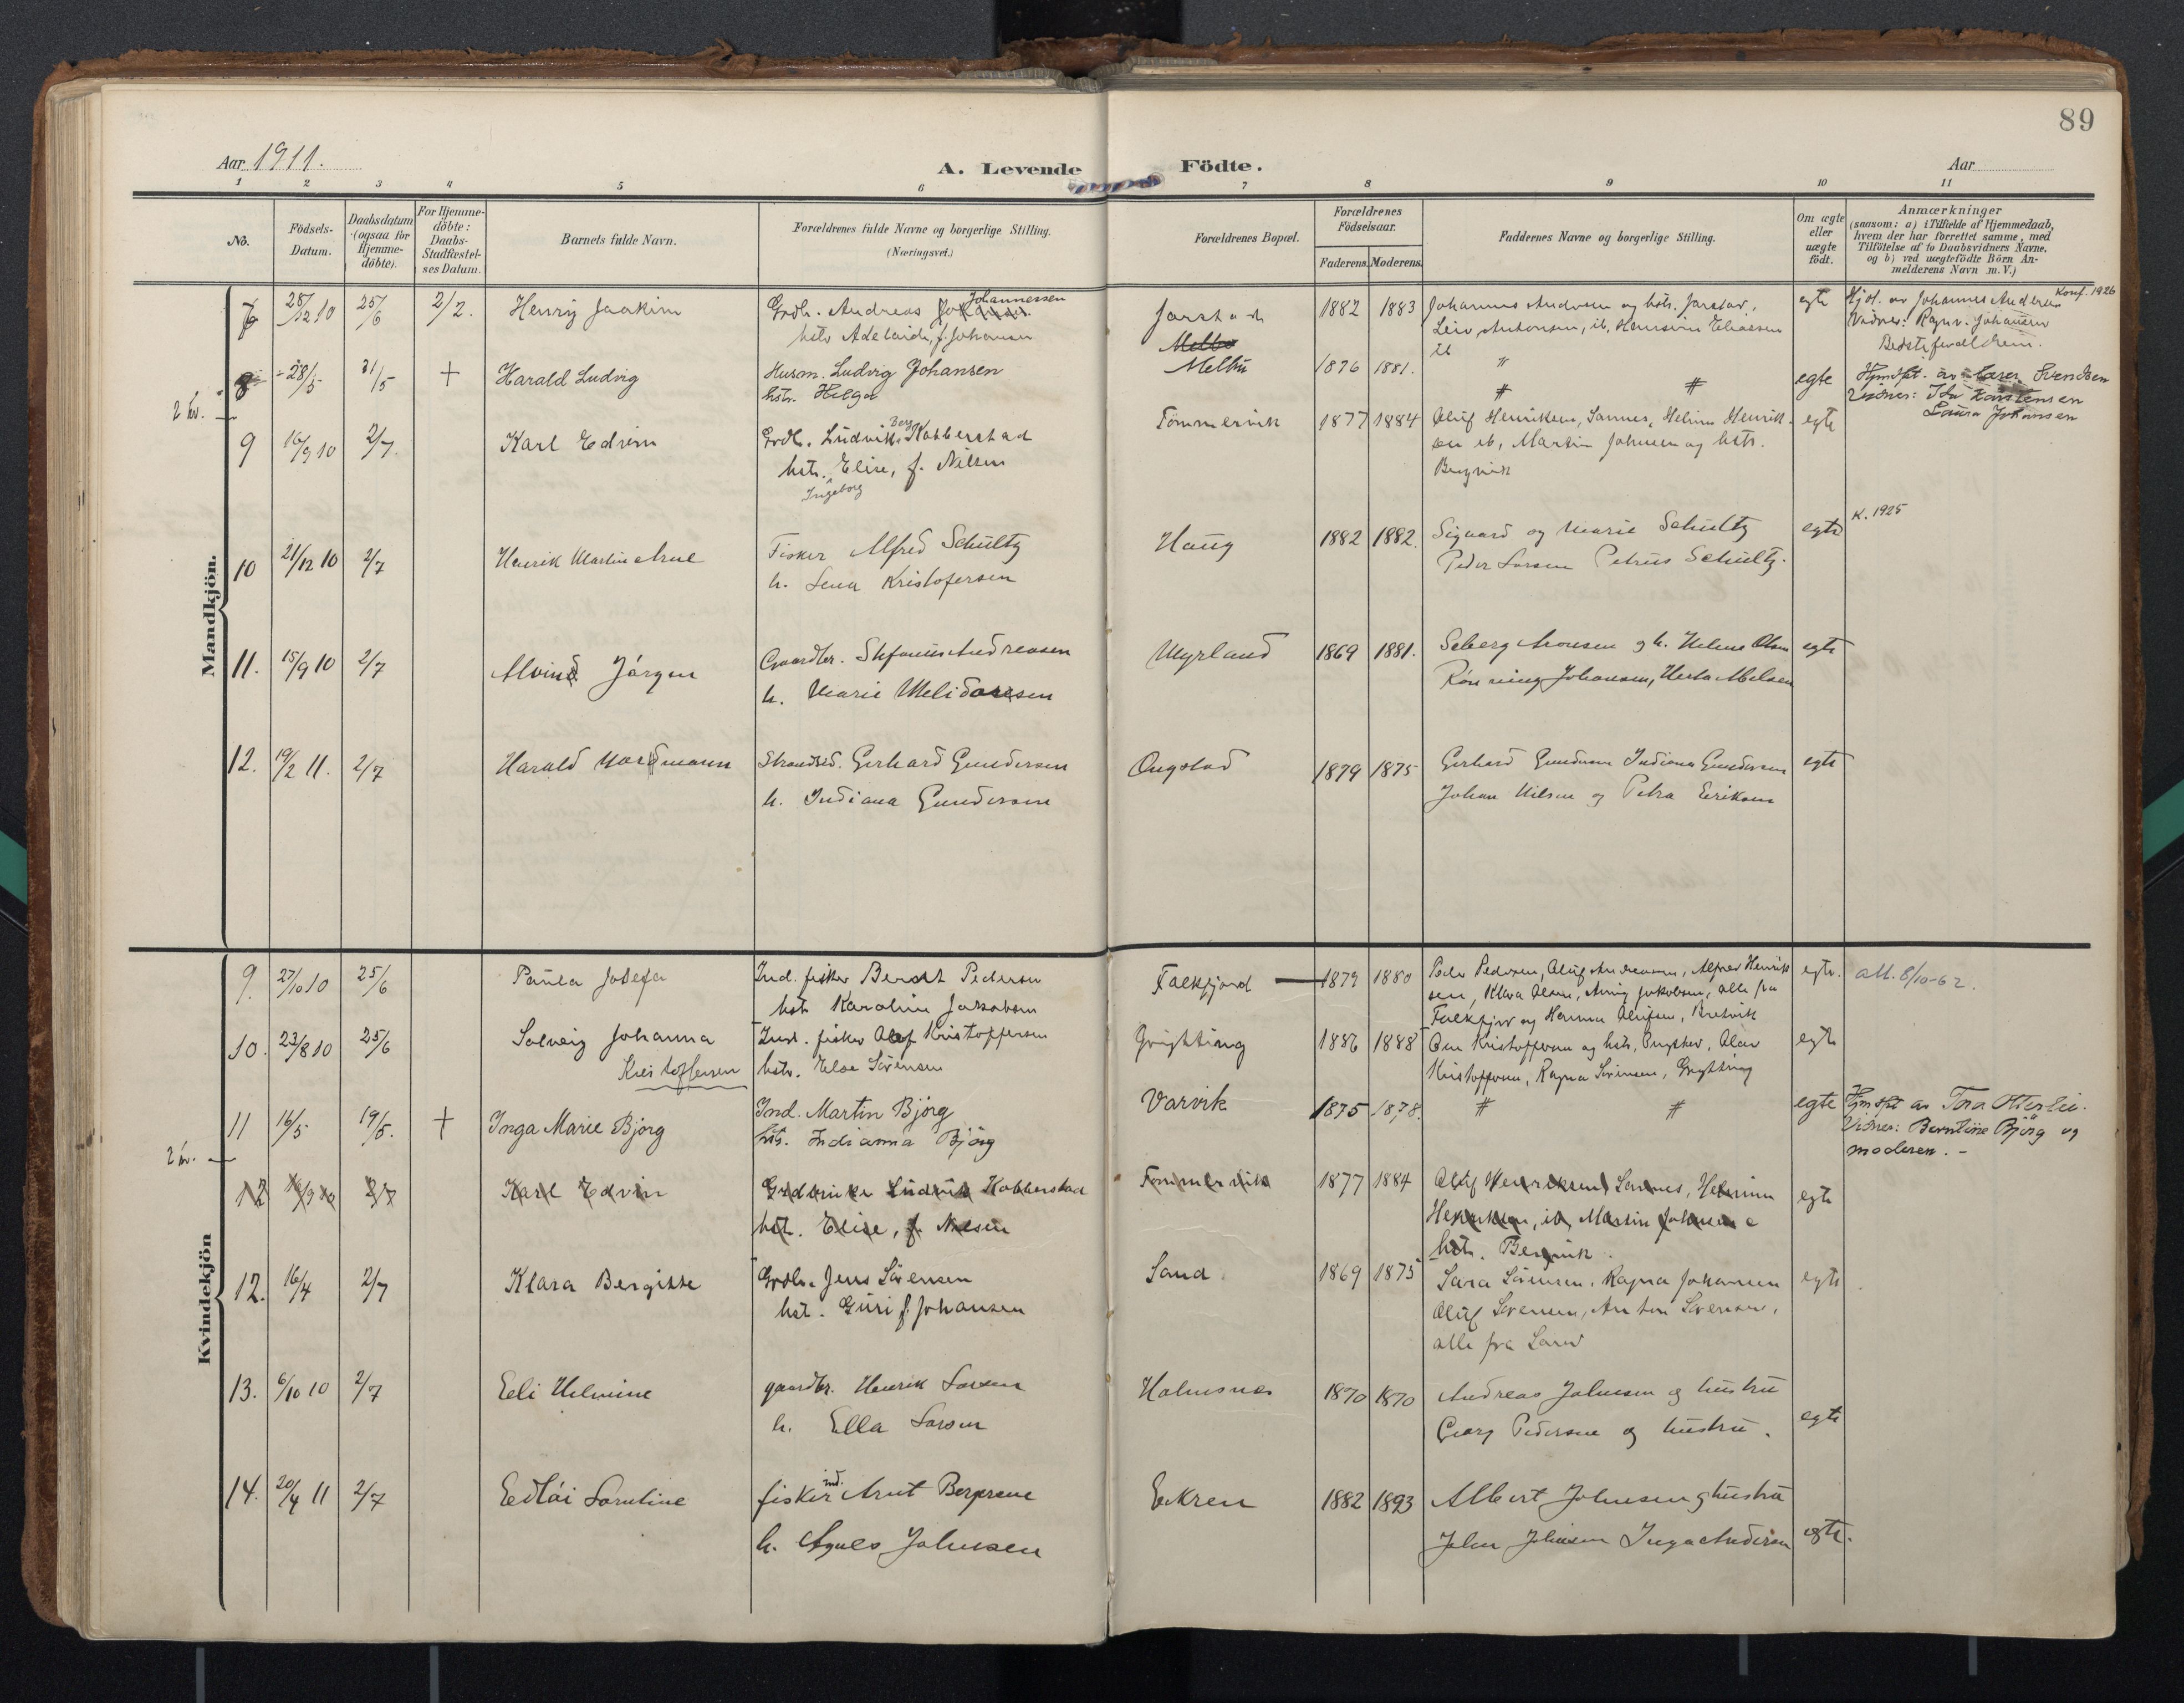 89
Aar 1911.
A. Levende Födte.
Aar
1 2 3 4 5 6 7 8 9 10 11
No.
Födsels-Datum.
Daabsdatum (ogsaa for Hjemme-döbte).
For Hjemme-döbte: Daabs-Stadfæstel-ses Datum.
Barnets fulde Navn.
Forældrenes fulde Navne og borgerlige Stilling.
(Næringsvei.)
Forældrenes Bopæl.
Forældrenes Födselsaar.
Faderens. Moderens.
Faddernes Navne og borgerlige Stilling.
Om ægte eller uægte födt.
Anmærkninger
(saasom: a) i Tilfælde af Hjemmedaab, hvem der har forrettet samme, med Tilföielse af to Daabsvidners Navne, og b) ved uægtefödte Börn An-melderens Navn m. V.)
Mandkjön.
28/12 10 25/6 2/2. Henry Joakim Grdb. Andreas Johannessen Jarstad 1882 1883 Johannes Andersen og hstr. Jarstad, egte Hjd. av Johannes Andersen Konf. 1926
hstr Adelaide, f. Johansen
Leiv Antonsen, ib, Eliassen
ib
Vidner: Ragnv. Johansen
8 28/5 31/5 + Harald Ludvig Husm. Ludvig Johansen Melbu 1876 1881. " egte Hjmdpt. av Svendsen
hstr. Helga
# #
Vidner: Ida Karstensen
Laura Johansen
2 kv.
9 16/9 10 2/7. Karl Edvin Grdb. Ludvik Berg Kobberstad Tömmervik 1877 1884 Oluf Henriksen, Sannes, Helmine Henrik- egte
hstr. Elise, f. Nilsen
Ingeborg
sen ib, Martin Johnsen og hstr.
Bergvik
10 21/12 10 2/7 Henrik Martin Arne Fisker Alfred Schultz Haug 1882 1882. Sigvard og Marie Schultz egte K. 1925
h. Lena Kristofersen
Peder Larsen Petrus Schultz.
11. 15/9 10 2/7 Alvind Jörgen Gaardbr. Stefanus Andreasen Myrland 1869 1881. Seberg Monsen og h. Helene Olsen egte
h. Marie Melidorsen
Rönning Johansen, Herta Nilsen
12. 19/2 11. 2/7 Harald Nordmann Strandsid. Gerhard Gundersen Ongstad 1879 1875 Gerhard Gundersen Indiana Gundersen egte
h. Indiana Gundersen
Johan Nilsen og Petra Eriksen
Kvindekjön
9. 27/10 10 25/6 Paula Josefa Ind. fisker Berdt Pedersen Falkfjord 1879 1880 Peder Pedersen, Oluf Andreasen, Alfred Henrik egte. att. 8/10-62.
hstr Karoline Jakobsen
sen, Klara Olsen, Jakobsen, alle fra
Falkfjord og Hanna Olufsen, Bretvik
10. 23/8 10 25/6 Solveig Johanna Ind. fisker Olaf Kristoffersen Grytting 1886 1888 Ole Kristoffersen og hstr, Ongstad, Olav egte
Kristoffersen hstr. Else Sörensen
Kristoffersen, Ragna Sörensen, Grytting
11 16/5 19/5. + Inga Marie Bjorg Ind. Martin Björg Varvik 1875 1878. # # egte Hjmdpt av Tora
hstr. Indianna Björg
Vidner: Berntine Björg og
moderen. -
2 kv.
12 16/9 10 2/7 Karl Edvin Ludvik Kobberstad Tömmervik 1877 1884 Oluf Henriksen, Sannes, Helmine egte
hstr. Elise, f. Nilsen
Henriksen, ib, Martin Johnsen o
hstr. Bervik.
12. 16/4 2/7 Klara Bergitte Grdb. Jens Sörensen Sand 1869 1875 Sara Sörensen, Ragna Johansen egte
hst. Guri f. Johansen
Oluf Sörensen, Anton Sörensen,
alle fra Sand
13. 6/10 10 2/7 Eeli Helmine gaardbr. Henrik Larsen Holmsnes 1870 1870 Andreas Johnsen og hustru
h. Ella Larsen
Georg Pedersen og hustru. egte
14. 20/4 11 2/7 Edtöi Lorntine fisker ind. Arnt Bergersen Eekren 1882 1893 Albert Johnsen og hustru
h. Agnes Johnsen
John Johnsen Inga Andersen egte.